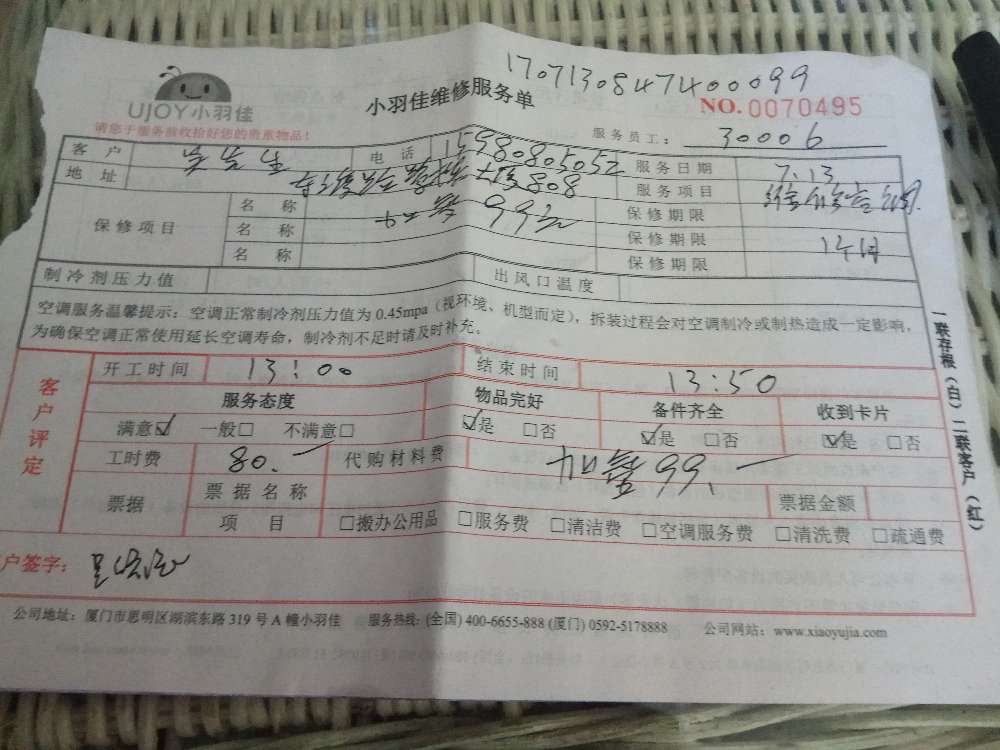 170713084747400099
UJOY小羽佳
小羽佳维修服务单
NO.0070495
请您于服务前收拾好您的贵重物品!
服务员工: 30006
客 户 电 话 15980805052 服务日期 7.13
地 址 808 服务项目 维修空调
保修项目
名 称 99元 保修期限
名 称 保修期限
名 称 保修期限
制冷剂压力值 出风口温度
空调服务温馨提示:空调正常制冷剂压力值为 0.45mpa(视环境、机型而定),拆装过程会对空调制冷或制热造成一定影响,
为确保空调正常使用延长空调寿命,制冷剂不足时请及时补充。
客户评定
开工时间 13:00 结束时间 13:50
服务态度 物品完好 备件齐全 收到卡片
满意☑ 一般□ 不满意□ ☑是 □否 ☑是 □否 ☑是 □否
工时费 80.一 代购材料费 99.一
票据 票据名称 票据金额
项 目 □搬办公用品 □服务费 □清洁费 □空调服务费 □清洗费 □疏通费
户签字:
公司地址:厦门市思明区湖滨东路 319 号 A 幢小羽佳 服务热线:(全国) 400-6655-888 (厦门) 0592-5178888 公司网站:www.xiaoyujia.com
一联存根(白)二联客户(红)